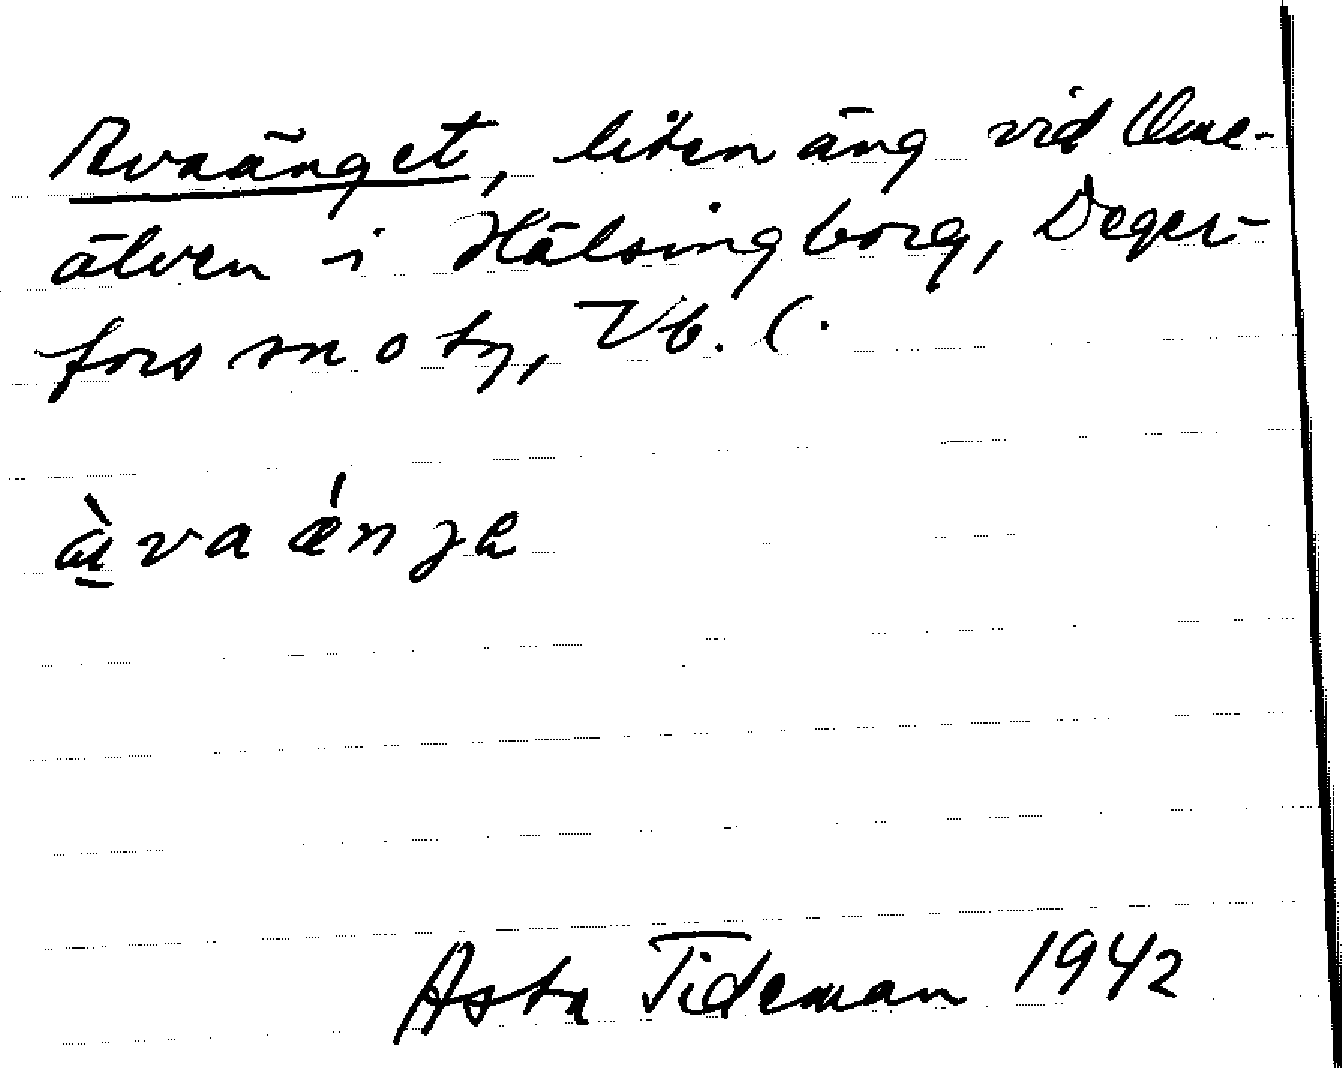 Avaänget, liten äng vid Ume-
älven i Hälsingborg, Deger-
fors sn o tg, Vb. l.
àvaénʒe
Asta Tideman 1942